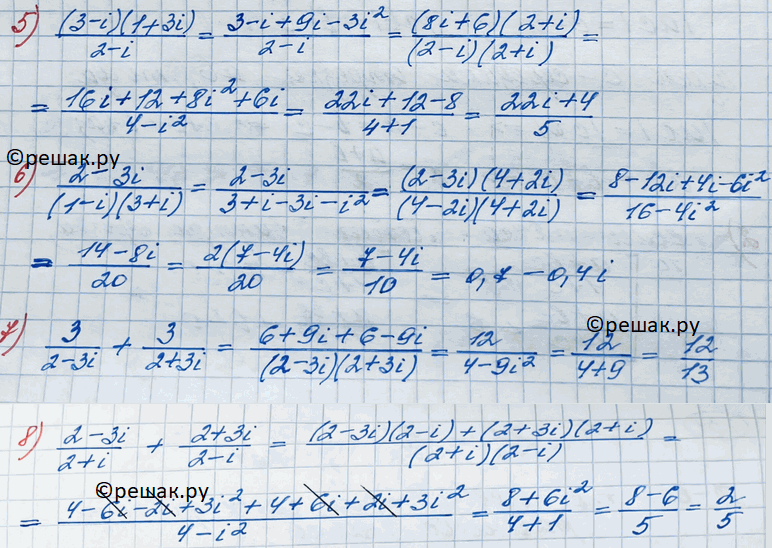 5) (3-i)(1+3i)/2-i = 3-i+9i-3i²/2-i = (8i+6)(2+i)/(2-i)(2+i) =
= 16i+12+8i²+6i/4-i² = 22i+12-8/4+1 = 22i+4/5
©решак.ру
6) 2-3i/(1-i)(3+i) = 2-3i/3+i-3i-i² = (2-3i)(4+2i)/(4-2i)(4+2i) = 8-12i+4i-6i²/16-4i²
= 14-8i/20 = 2(7-4i)/20 = 7-4i/10 = 0,7-0,4i
©решак.ру
7) 3/2-3i + 3/2+3i = 6+9i+6-9i/(2-3i)(2+3i) = 12/4-9i² = 12/4+9 = 12/13
8) 2-3i/2+i + 2+3i/2-i = (2-3i)(2-i)+(2+3i)(2+i)/(2+i)(2-i) =
©решак.ру
= 4-6i-2i+3i²+4+6i+2i+3i²/4-i² = 8+6i²/4+1 = 8-6/5 = 2/5